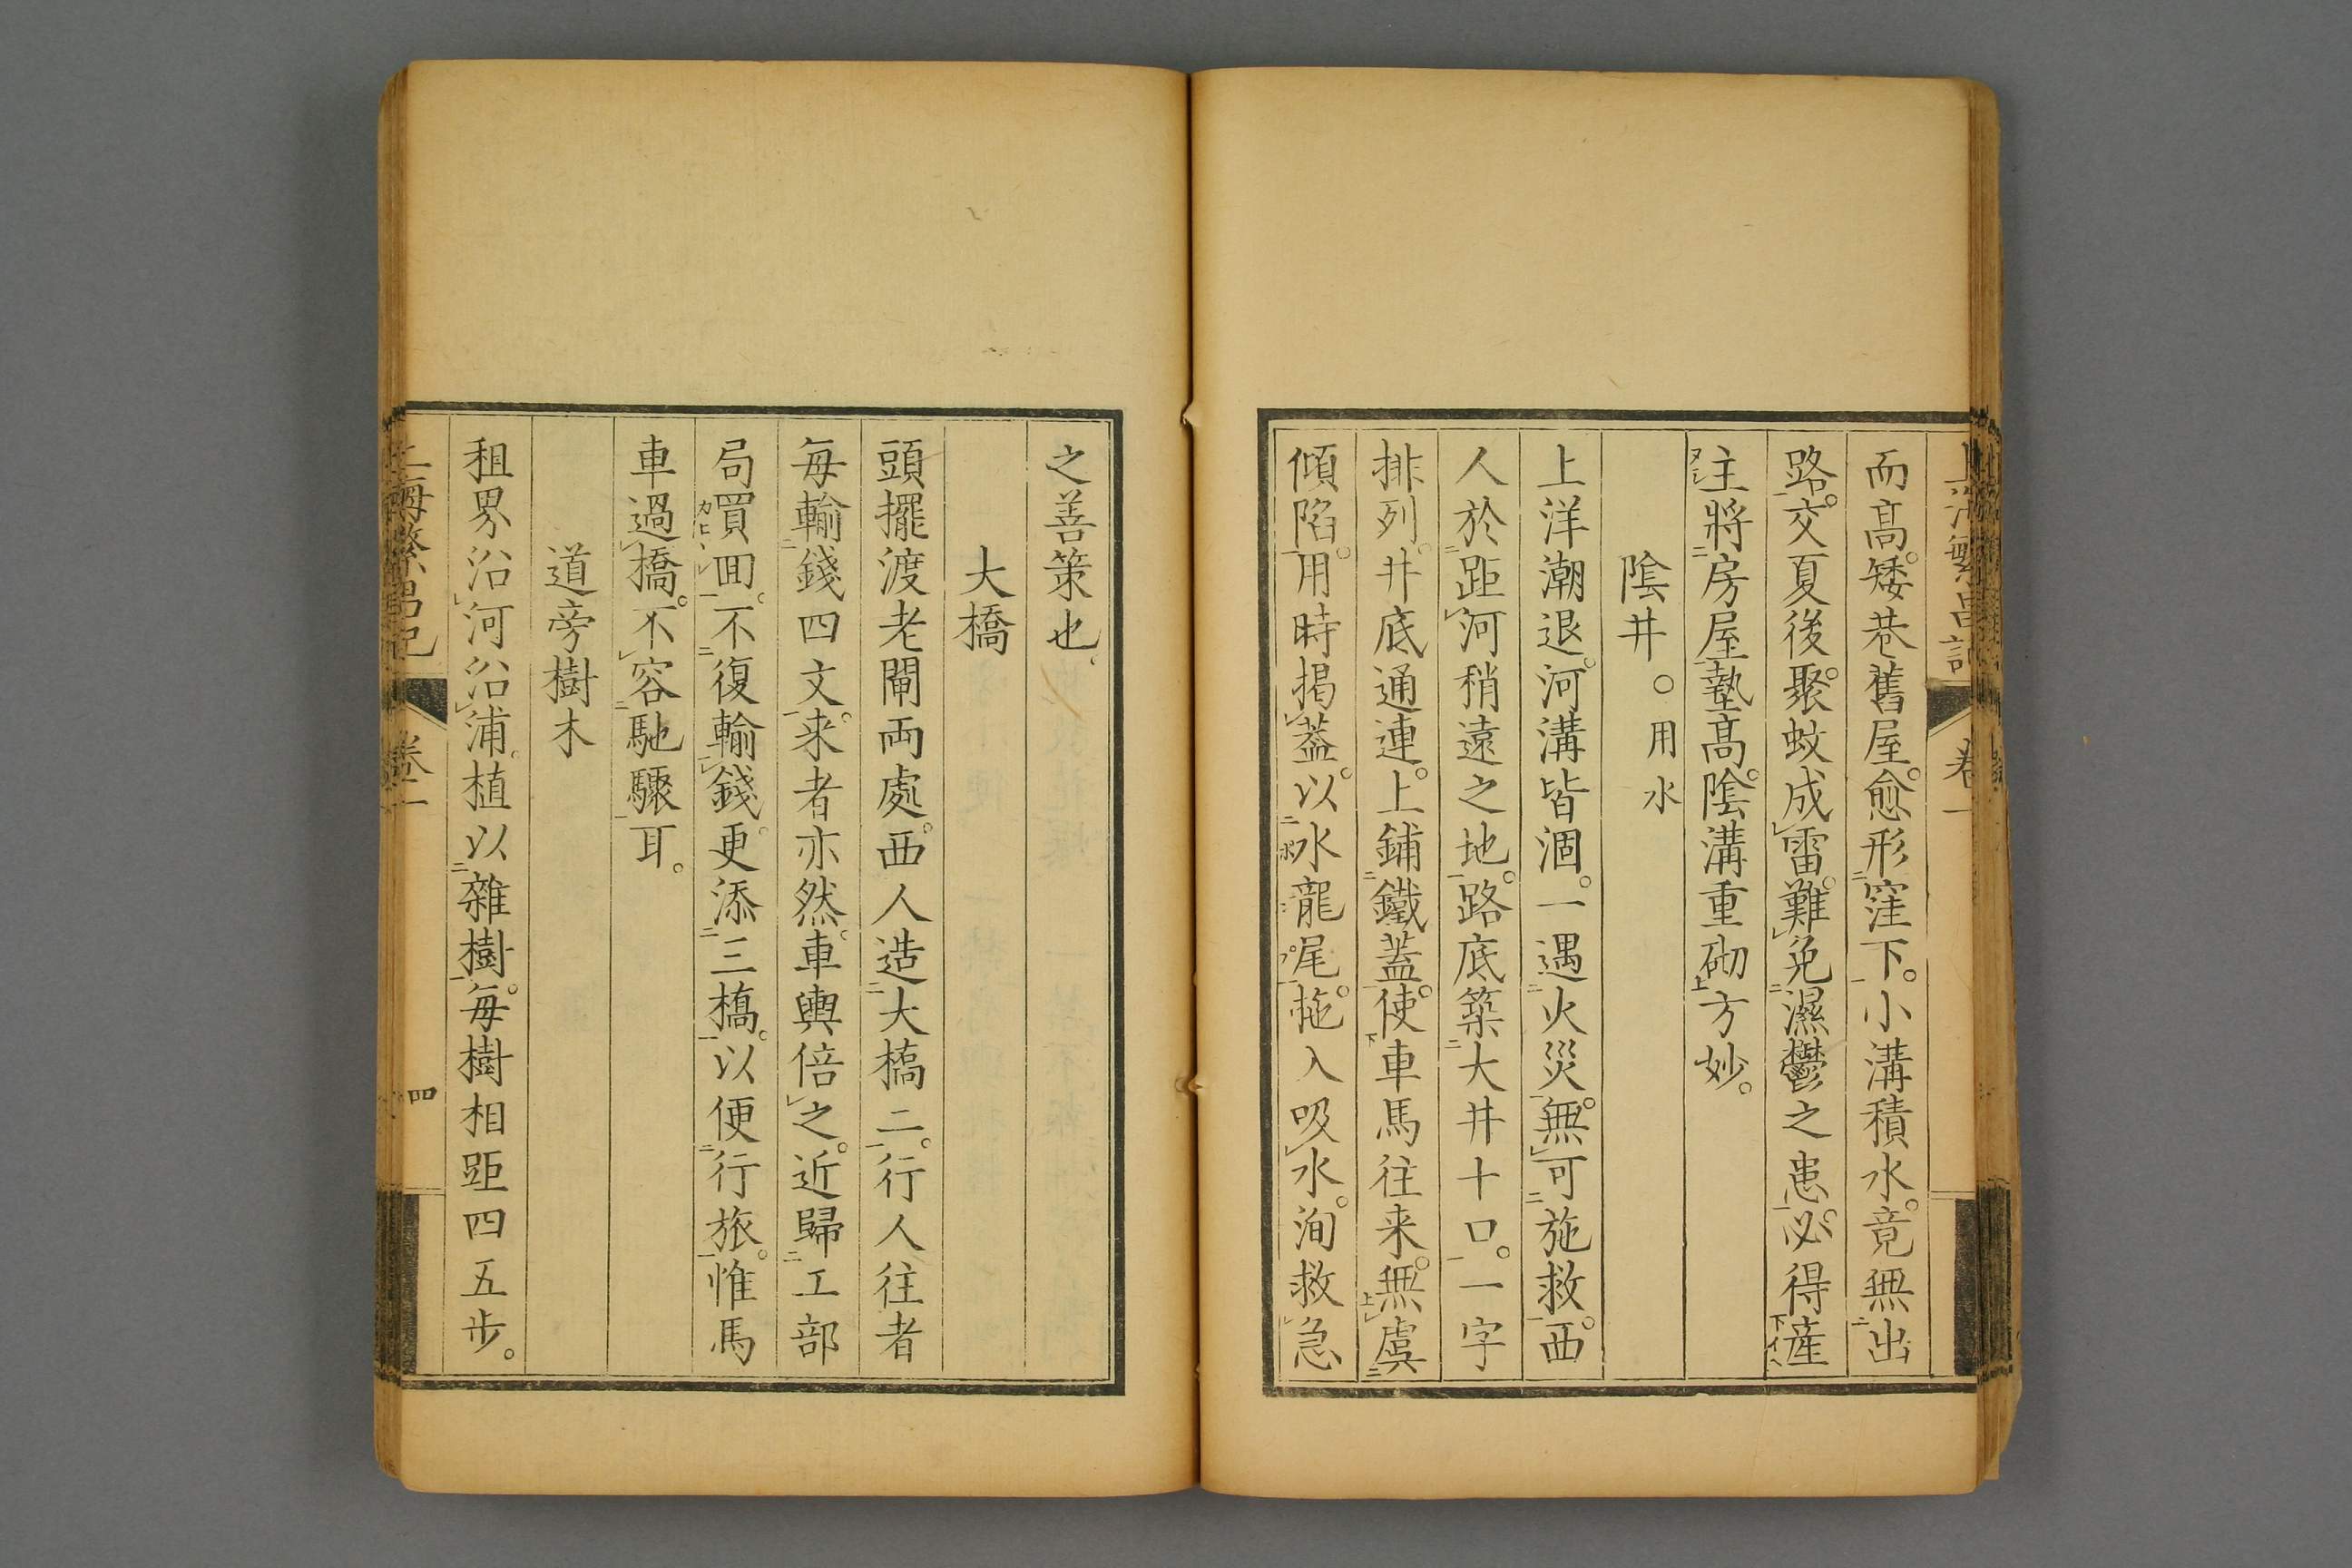 而高。矮巷舊屋。愈形窪下。小溝積水。竟無出
路。交夏後。聚蚊成雷。難免濕鬱之患。必得産
主將房屋墊高。陰溝重砌方妙。
陰井。用水
上洋潮退。河溝皆涸。一遇火災。無可施救。西
人於距河稍遠之地。路底築大井十口。一字
排列。井底通連。上鋪鐵蓋。使車馬往来。無虞
傾陷。用時揭蓋。以水龍尾。拖入吸水。洵救急
之善策也、
大橋
頭擺渡老閘両處。西人造大橋二。行人往者
毎輸錢四文。来者亦然。車輿倍之。近歸工部
局買回。不復輸錢。更添三橋。以便行旅。惟馬
車過橋。不容馳驟耳。
道旁樹木
租界沿河沿浦。植以雜樹。毎樹相距四五步。
上海繁昌記 卷一 四